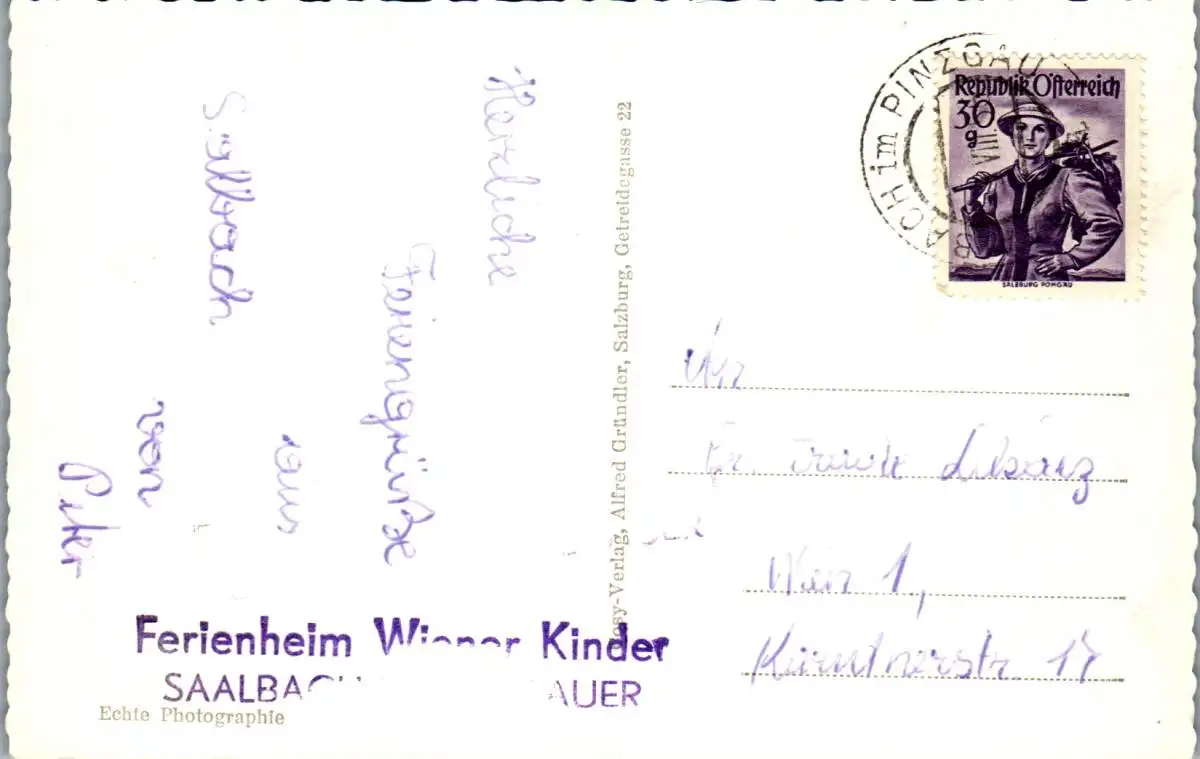 Herzliche
Feriengrüße
aus
Saalbach
von
Peter
Cosy-Verlag, Alfred Gründler, Salzburg, Getreidegasse 22
BACH im PINZGAU
VIII
Republik Österreich
30
g
SALZBURG PONGAU
Wien 1,
Kärntnerstr. 17
Ferienheim Wiener Kinder
SAALBACH AUER
Echte Photographie